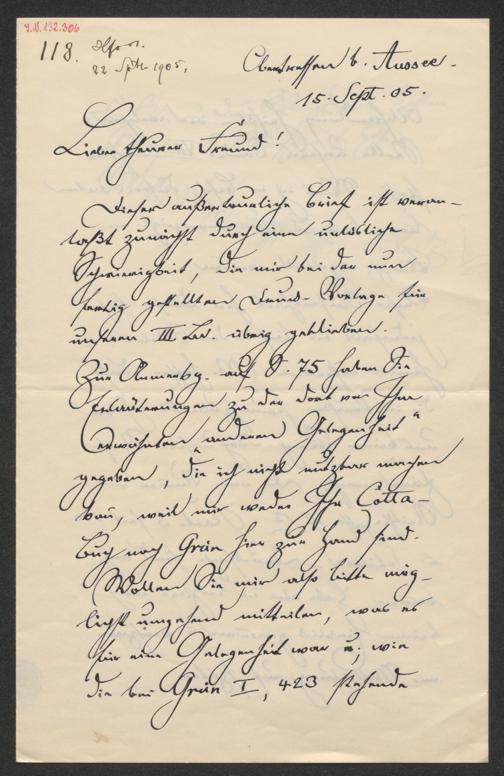 I.N. 132.306
118.
22 Sept. 1905.
Obertressen b. Aussee.
15. Sept. 05.
Lieber theurer Freund!
Dieser außertourliche Brief ist veran-
laßt zunächst durch eine unlösliche
Schwierigkeit, die mir bei der nun
fertig gestellten Druck-Vorlage für
unseren III Bd. übrig geblieben.
Zur Anmerkg. auf S. 75 haben Sie
Erläuterungen zu der dort von Ihm
erwähnten „anderen Gelegenheit“
gegeben, die ich nicht nutzbar machen
kan̄, weil mir weder Ihr Cotta-
Buch noch Grün hier zur Hand sind.
Wollen Sie mir also bitte mög-
lichst umgehend mitteilen, was es
für eine Gelegenheit war u. wie
die bei Grün I, 423 stehende